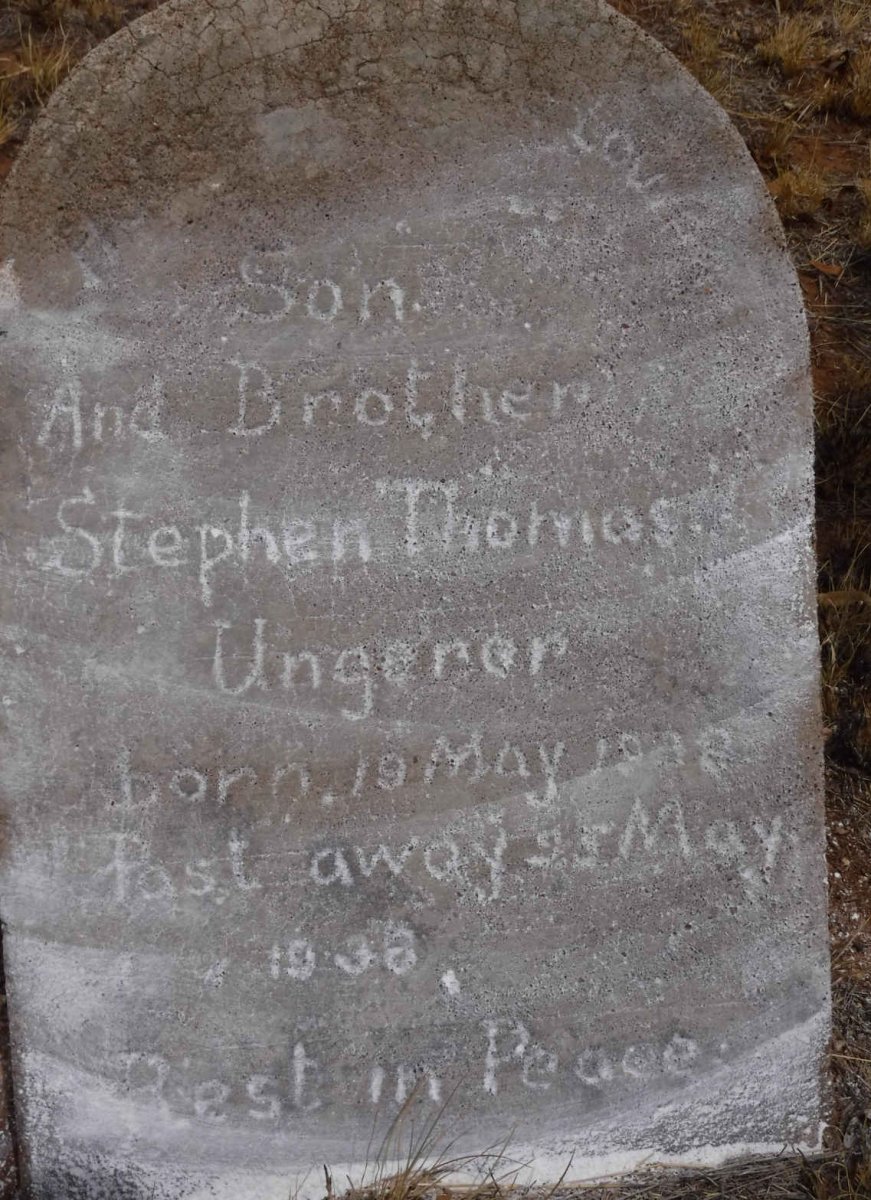 Son.
And Brother
Stephen Thomas.
Ungerer
born. 19 May
Past away 25 May
1938
Rest in Peace.